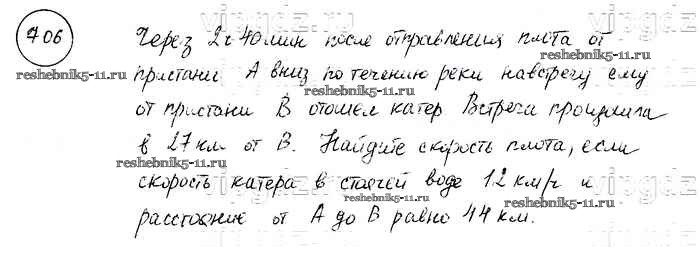 706 Через 2ч 40 мин после отправления плота от
пристани А вниз по течению реки навстречу ему
от пристани В отошел катер Встреча произошла
в 27 км от В. Найдите скорость плота, если
скорость катера в стоячей воде 12 км/ч и
расстояние от А до В равно 44 км.
vipgdz
vipgdz.ru
reshebnik5-11.ru
reshebnik5-11.ru
reshebnik5-11.ru
reshebnik5-11.ru
reshebnik5-11.ru